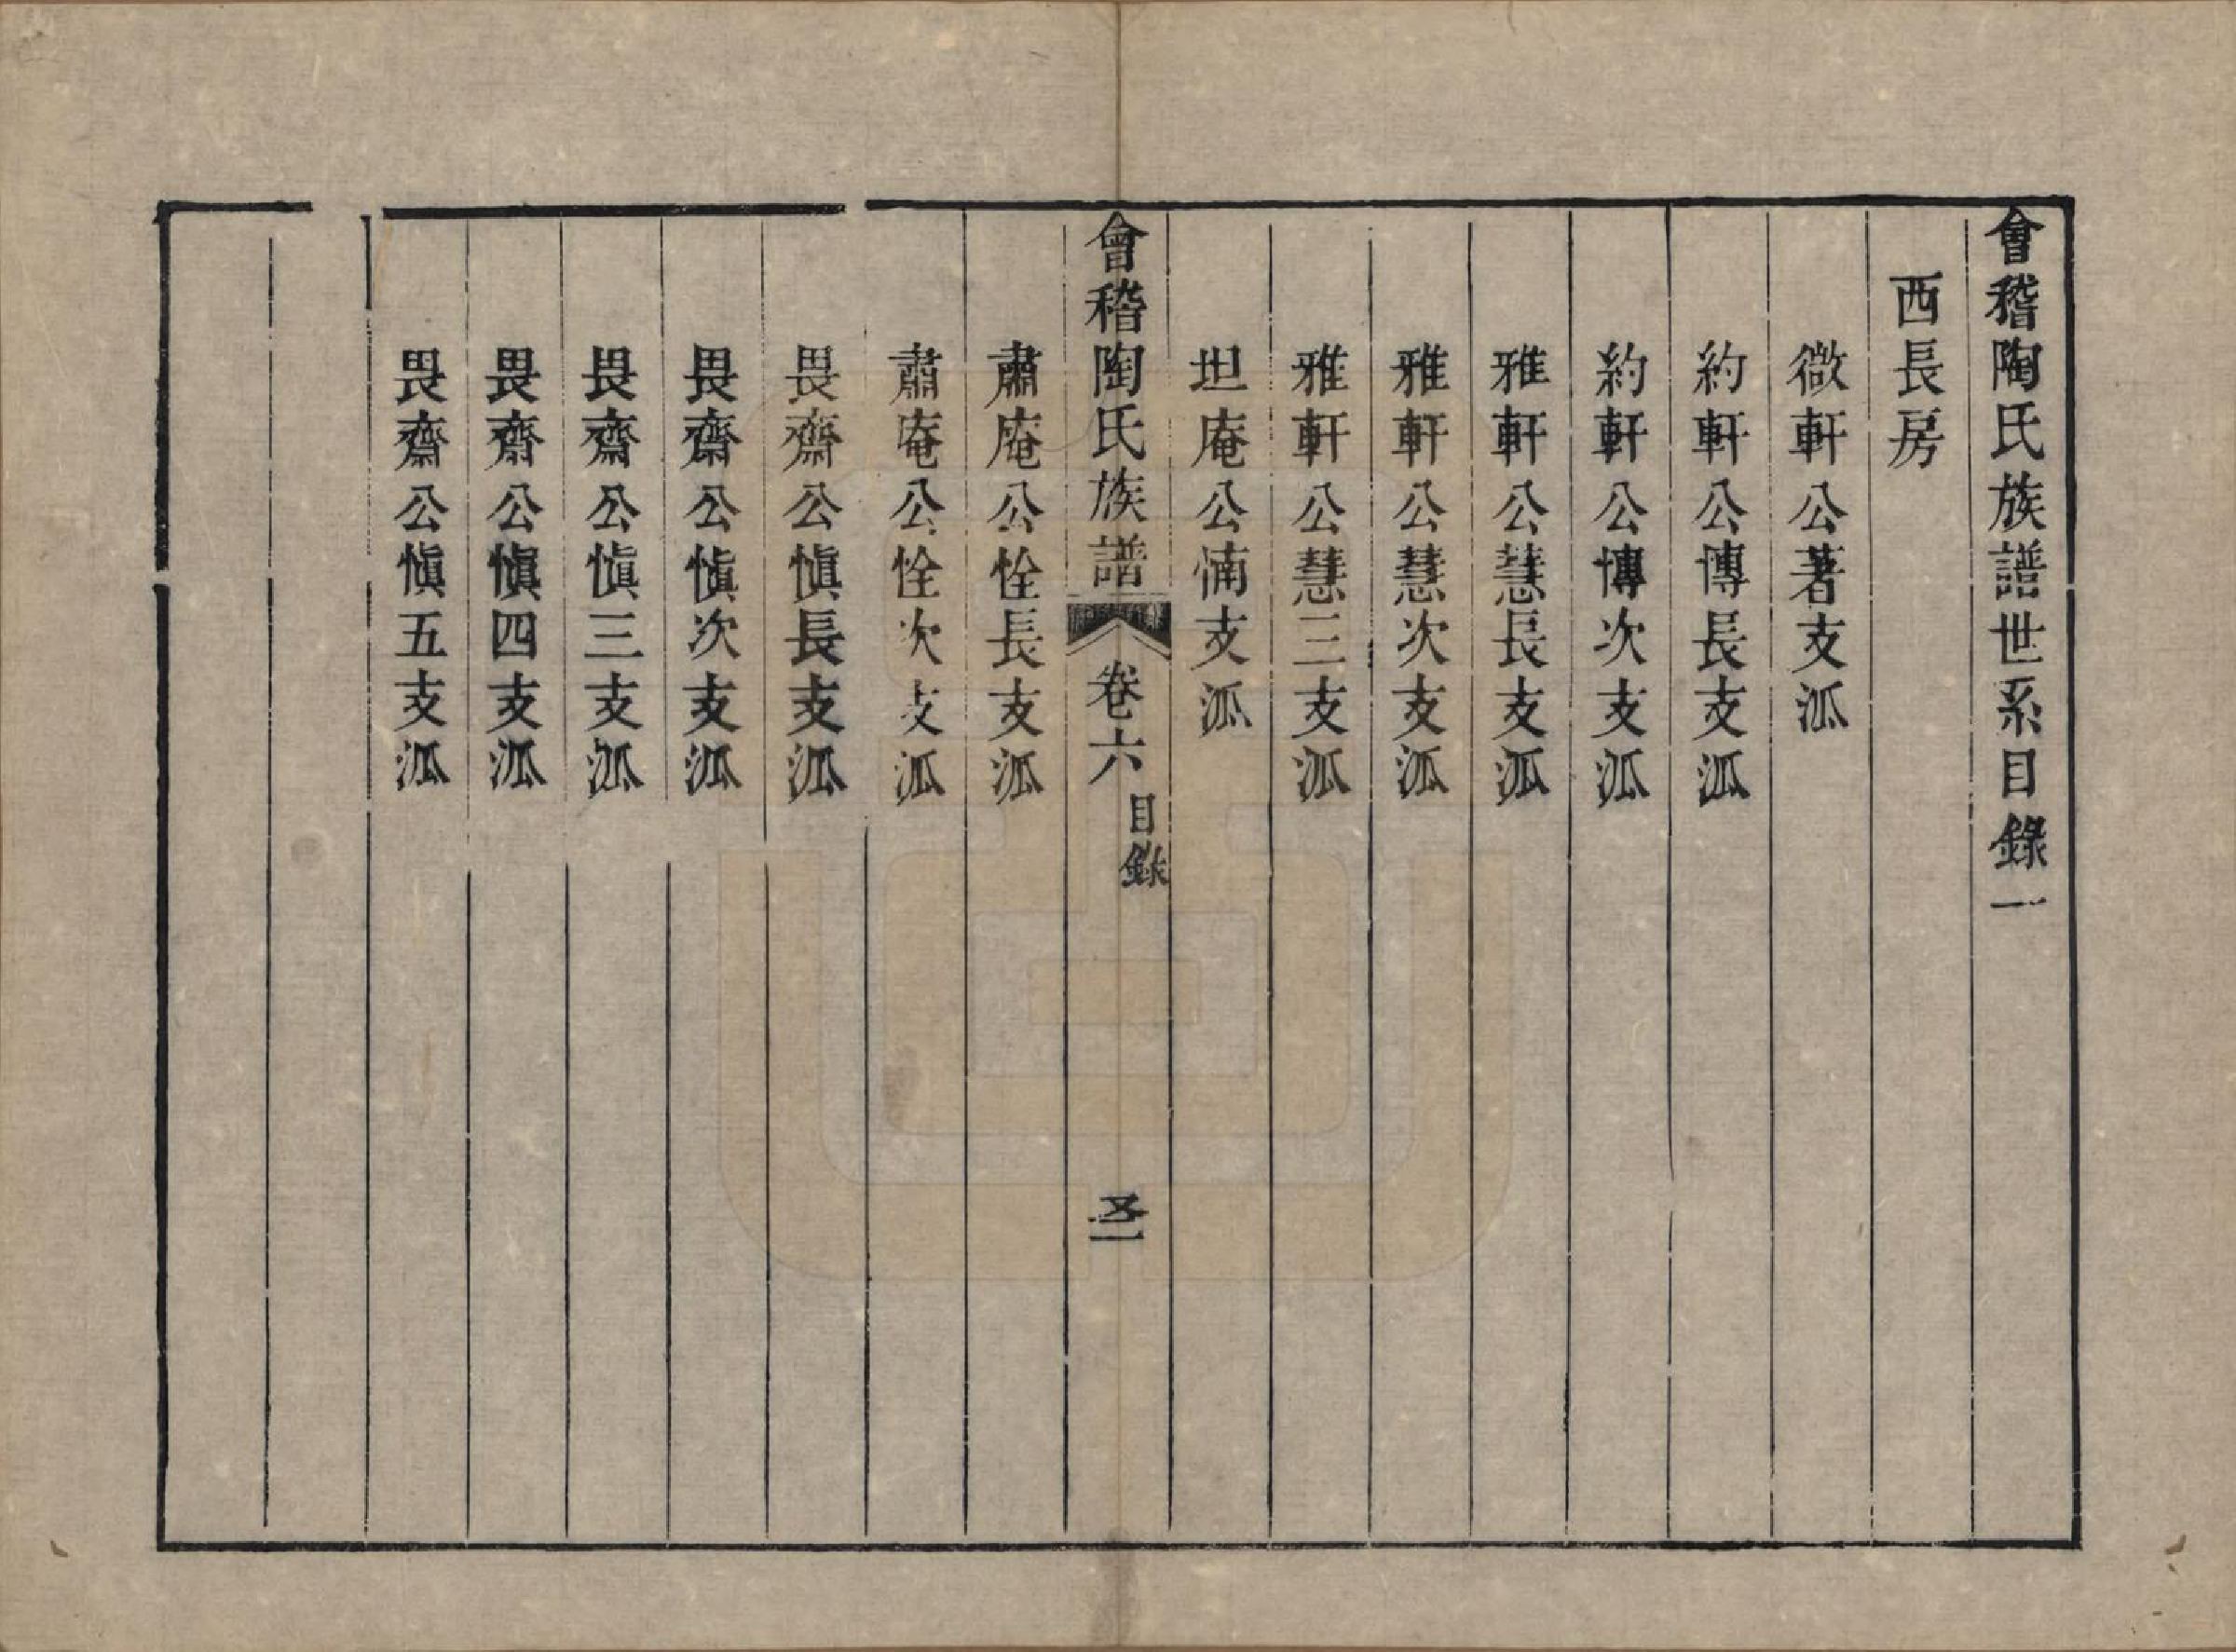 會稽陶氏族譜世系目錄一
西長房
微軒公著支派
約軒公慱長支派
約軒公慱次支派
雅軒公慧長支派
雅軒公慧次支派
雅軒公慧三支派
坦庵公愐支派
會稽陶氏族譜
卷六
目錄
肅庵公恮長支派
肅庵公恮次支派
畏齋公愼長支派
畏齋公愼次支派
畏齋公愼三支派
畏齋公愼四支派
畏齋公愼五支派